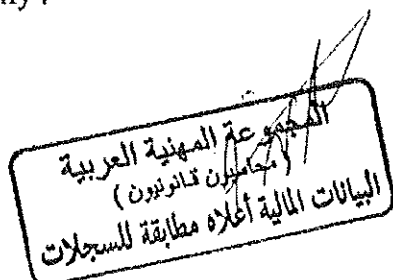 المجموعة المهنية العربية
(محاسبون قانونيون)
البيانات المالية أعلاه مطابقة للسجلات